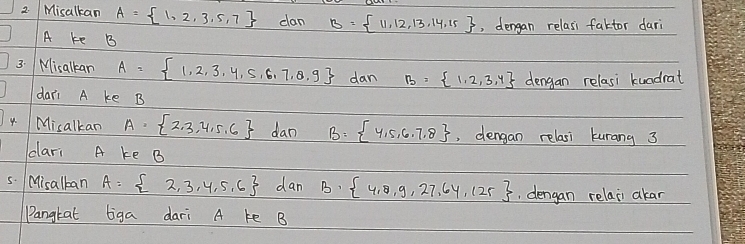 2. Misalkan A = { 1, 2, 3, 5, 7 } dan B = { 11, 12, 13, 14, 15 }, dengan relasi faktor dari
A ke B
3. Misalkan A = { 1, 2, 3, 4, 5, 6, 7, 8, 9 } dan B = { 1, 2, 3, 4 } dengan relasi kuadrat
dari A ke B
4. Misalkan A = { 2, 3, 4, 5, 6 } dan B = { 4, 5, 6, 7, 8 }, dengan relasi kurang 3
dari A ke B
5. Misalkan A = { 2, 3, 4, 5, 6 } dan B = { 4, 8, 9, 27, 64, 125 }, dengan relasi akar
Pangkat tiga dari A ke B